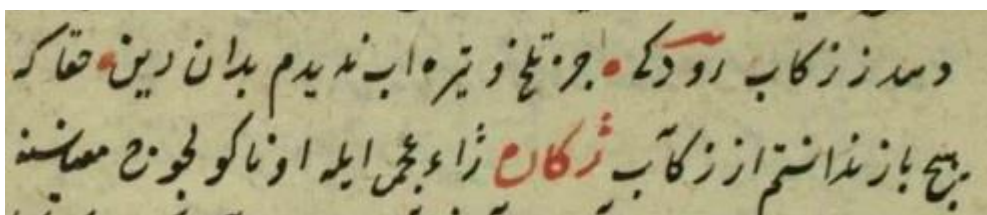 زکاب رودکی • جز تلخ و تیره اب ندیدم بدان زمین • حقا که
هیچ باز ندانستم از زکآب ژکاره زاء عجمی ایله اوناکو لجوج معناسنه